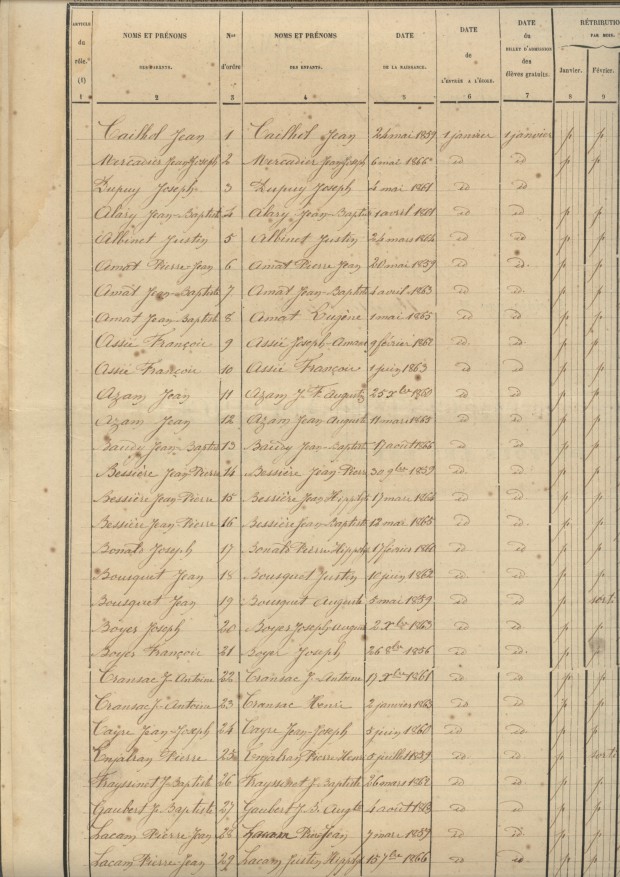 ARTICLE du rôle. (1) NOMS ET PRÉNOMS DES PARENTS. Nos d'ordre NOMS ET PRÉNOMS DES ENFANTS. DATE DE LA NAISSANCE. DATE de L'ENTRÉE A L'ÉCOLE. DATE du BILLET D'ADMISSION des élèves gratuits. RÉTRIBUTION PAR MOIS. Janvier. Février.
1 2 3 4 5 6 7 8 9
Cailhol Jean 1 Cailhol Jean 24 mai 1859 1 janvier 1 janvier p p
Mercadier Jean Joseph 2 Mercadier Jean Joseph 6 mai id id p p
Dupuy Joseph 3 Dupuy Joseph 4 mai 1861 id id
Alary Jean-Baptiste 4 Alary Jean-Baptiste 1 avril 1861 id id p p
Albinet Justin 5 Albinet Justin 24 mars id id p p
Amat Pierre Jean 6 Amat Pierre Jean 20 mai 1859 id id p p
Amat Jean-Baptiste 7 Amat Jean-Baptiste avril 1863 id id p p
Amat Jean-Baptiste 8 Amat Eugène 1 mai 1865 id id p p
Assié François 9 Assié Joseph 9 février id id p p
Assié François 10 Assié François 1 juin 1863 id id p p
Azam Jean 11 Azam J. F. August 25 Xbre 1860 id id p p
Azam Jean 12 Azam Jean Auguste 11 mars 1865 id id p p
Baudy Jean-Baptiste 13 Baudy Jean-Baptiste 17 août id id p p
Bessière Jean Pierre 14 Bessière Jean Pierre 30 9bre 1859 id id p p
Bessière Jean Pierre 15 Bessière Jean Hipply 17 mars id id p p
Bessière Jean Pierre 16 Bessière Jean-Baptiste 12 mar. 1865 id id p p
Bonals Joseph 17 Bonals Pierre Hipply 17 février 1860 id id p p
Bousquet Jean 18 Bousquet Justin 10 juin 1862 id id p p
Bousquet Jean 19 Bousquet Auguste 5 mai 1859 id id p sorti
Boyer Joseph 20 Boyer Joseph 2 Xbre 1863 id id p p
Boyer François 21 Boyer Joseph 26 8bre 1856 id id p
Cransac J. Antoine 22 Cransac J. Antoine 17 Xbre 1861 id id p p
Cransac J. Antoine 23 Cransac Henri 2 janvier 1863 id id p p
Cayre Jean-Joseph 24 Cayre Jean-Joseph 5 juin 1860 id id p p
Enjalran Pierre 25 Enjalran Pierre Henri 5 juillet 1859 id id p sorti
Frayssinet J. Baptiste 26 Frayssinet J. Baptiste 26 mars id id p p
Gaubert J. Baptiste 27 Gaubert J. B. Augte 4 août id id p p
Lacam Pierre Jean 28 Lacam Jean 7 mars 1859 id id p p
Lacam Pierre Jean 29 Lacam Justin Hipply 15 7bre 1866 id id p p